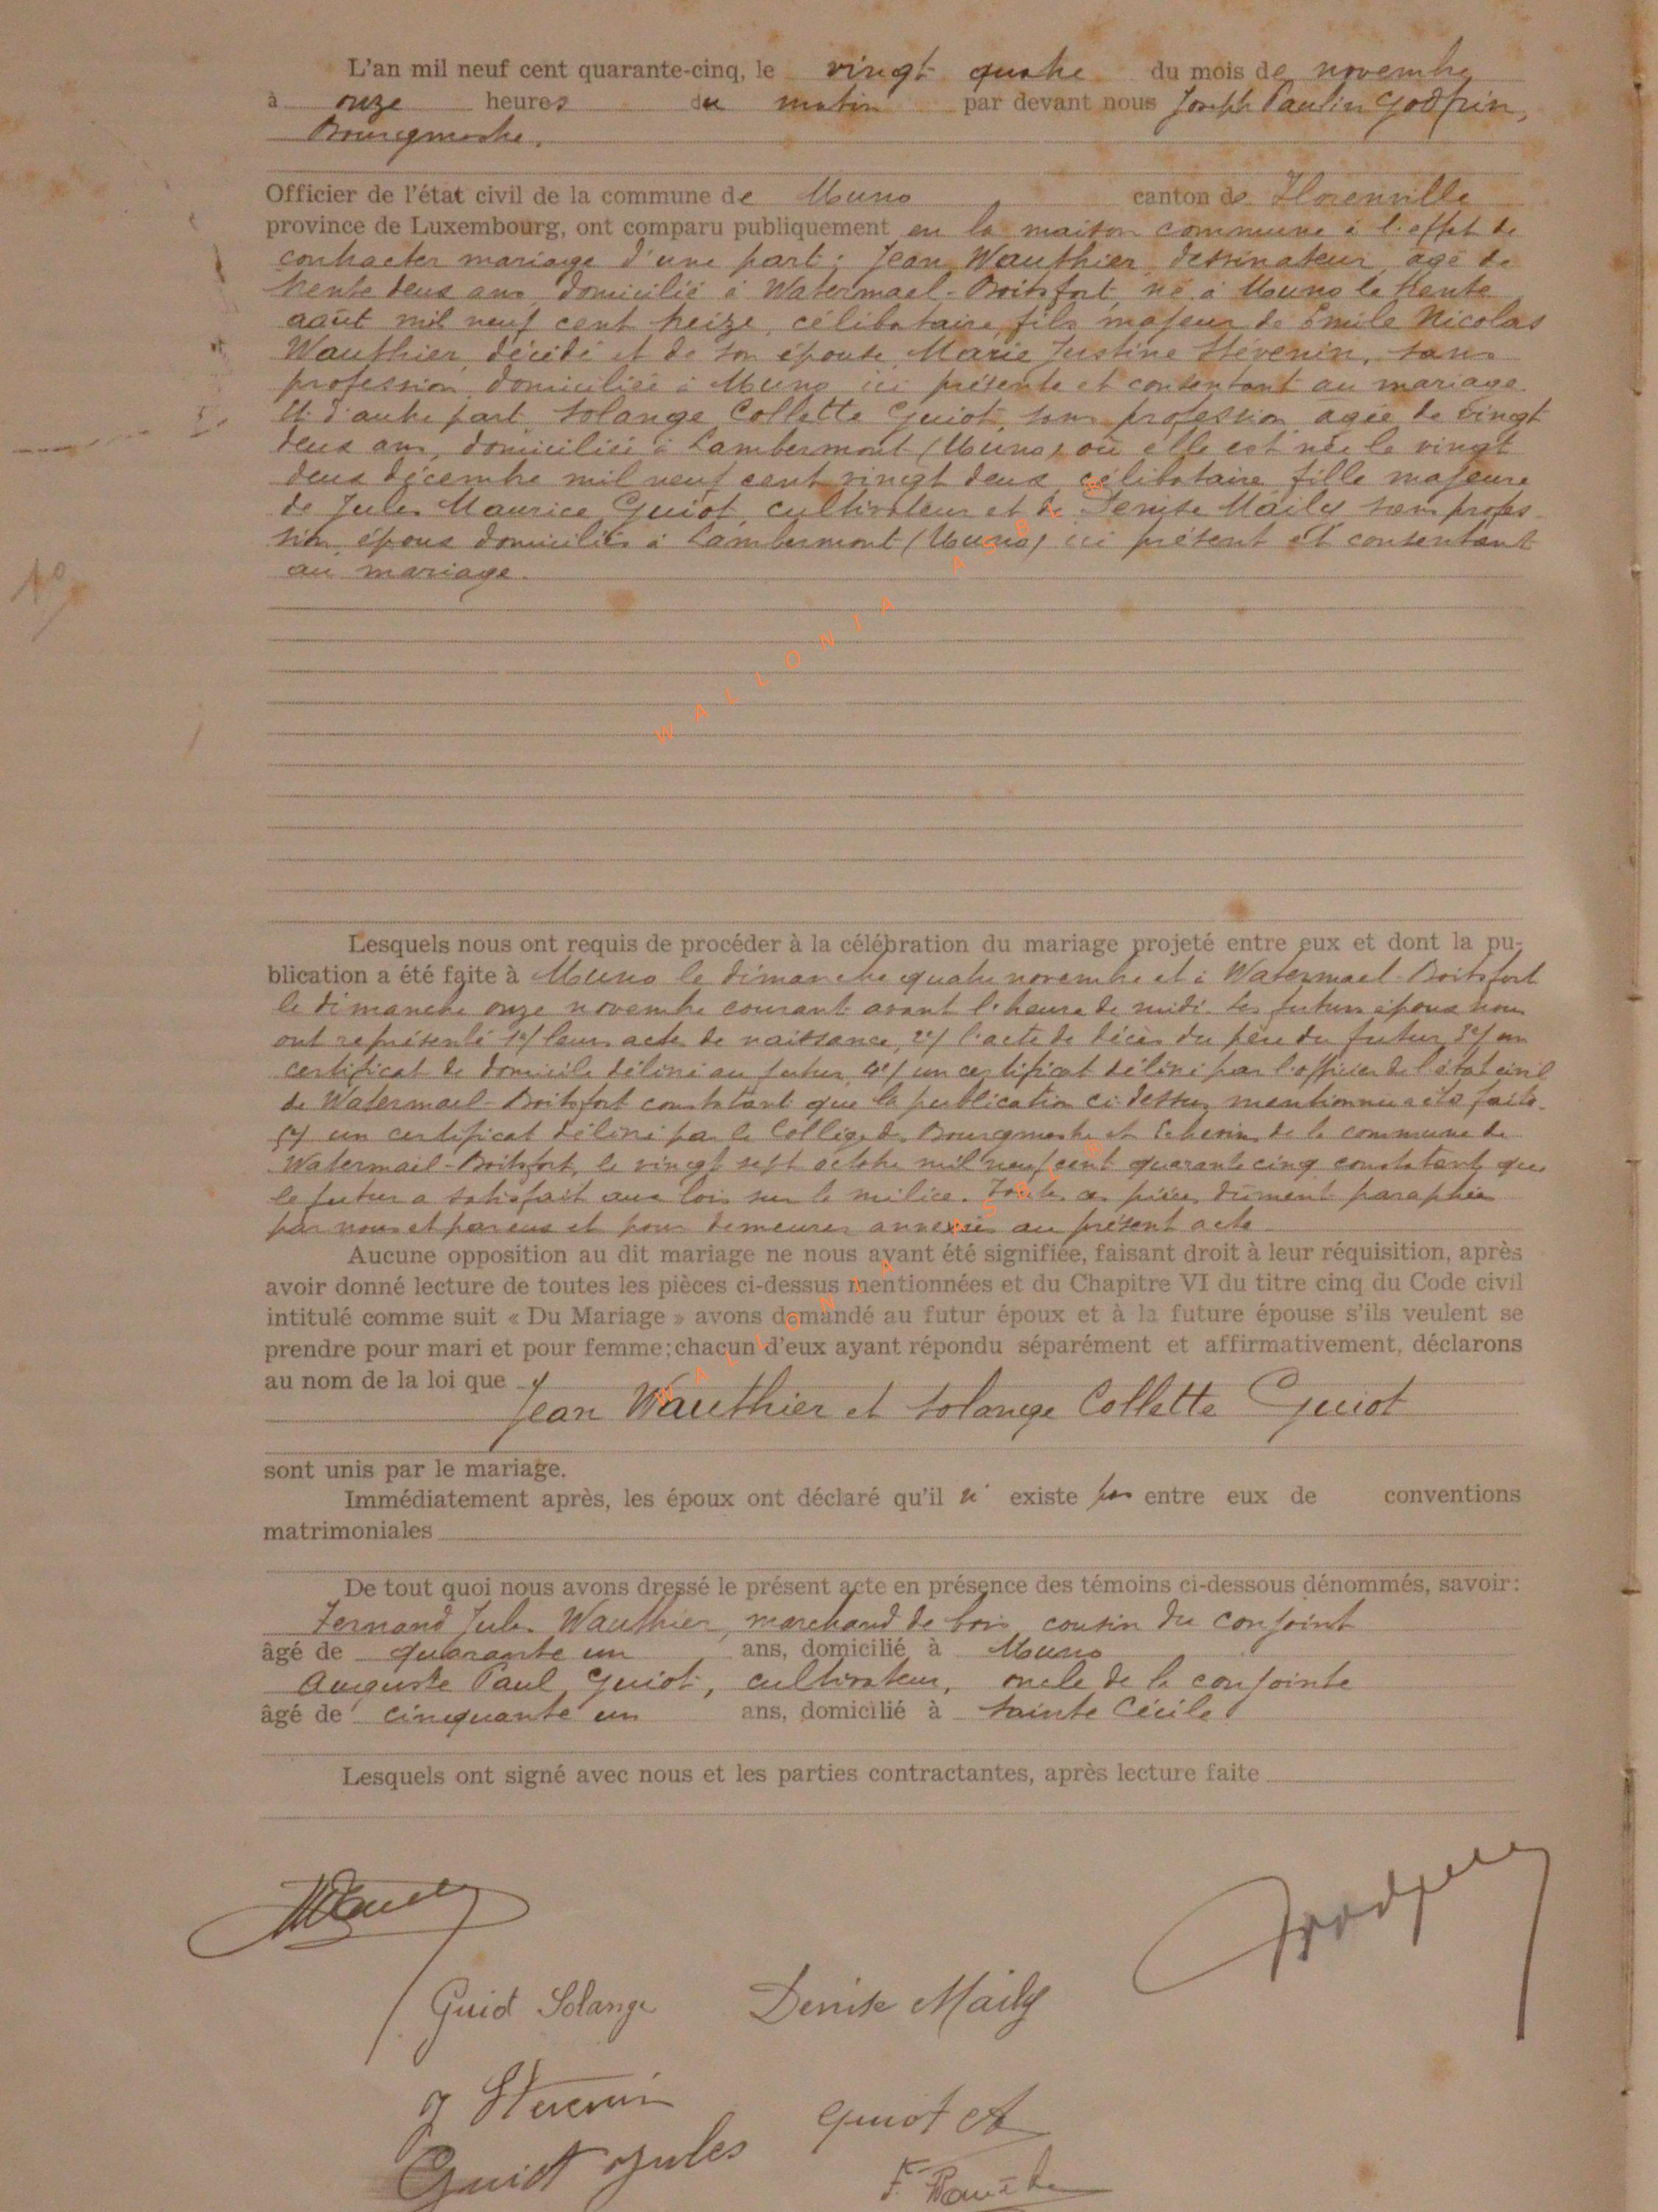 L'an mil neuf cent quarante-cinq, le vingt quatre du mois de novembre
à onze heures du matin par devant nous Joseph Paulin Godfrin,
Bourgmestre.
Officier de l'état civil de la commune de Muno canton de Florenville
province de Luxembourg, ont comparu publiquement en la maison commune à l'effet de
contracter mariage d'une part: Jean Wauthier, dessinateur, agé de
trente deux ans, domicilié à Watermael-Boitsfort, né à Muno le trente
août mil neuf cent treize, célibataire, fils majeur de Emile Nicolas
Wauthier, décédé et de son épouse Marie Justine Stévenin, sans
profession, domiciliée à Muno ici présente et consentant au mariage.
Et d'autre part Solange Collette Guiot, sans profession, agée de vingt
deux ans, domiciliée à Lambermont (Muno) où elle est née le vingt
deux décembre mil neuf cent vingt deux, célibataire fille majeure
de Jules Maurice Guiot, cultivateur et de Denise Maily sans profes-
sion, époux domiciliés à Lambermont (Muno) ici présent et consentant
au mariage.
WALLONIA ASBL ©
Lesquels nous ont requis de procéder à la célébration du mariage projeté entre eux et dont la pu-
blication a été faite à Muno le dimanche quatre novembre et à Watermael-Boitsfort
le dimanche onze novembre courant avant l'heure de midi. Les futurs époux nous
ont représenté 1°/ leurs actes de naissance, 2°/ l'acte de décès du père du futur, 3°/ un
certificat de domicile délivré au futur, 4°/ un certificat délivré par l'officier de l'état civil
de Watermael-Boitsfort constatant que la publication ci-dessus mentionnée a été faite.
5°/ un certificat délivré par le Collège des Bourgmestre et Echevins de la commune de
Watermael-Boitsfort, le vingt sept octobre mil neuf cent quarante cinq constatant que
le futur a satisfait aux lois sur la milice. Toutes ces pièces dûment paraphées
par nous et par eux et pour demeurer annexées au présent acte.
Aucune opposition au dit mariage ne nous ayant été signifiée, faisant droit à leur réquisition, après
avoir donné lecture de toutes les pièces ci-dessus mentionnées et du Chapitre VI du titre cinq du Code civil
intitulé comme suit « Du Mariage » avons demandé au futur époux et à la future épouse s'ils veulent se
prendre pour mari et pour femme; chacun d'eux ayant répondu séparément et affirmativement, déclarons
au nom de la loi que
Jean Wauthier et Solange Collette Guiot
WALLONIA ASBL ©
sont unis par le mariage.
Immédiatement après, les époux ont déclaré qu'il n' existe pas entre eux de conventions
matrimoniales
De tout quoi nous avons dressé le présent acte en présence des témoins ci-dessous dénommés, savoir:
Fernand Jules Wauthier, marchand de bois, cousin du conjoint
âgé de quarante un ans, domicilié à Muno
Auguste Paul Guiot, cultivateur, oncle de la conjointe
âgé de cinquante un ans, domicilié à Sainte Cécile
Lesquels ont signé avec nous et les parties contractantes, après lecture faite
Guiot Solange Denise Maily
J Stevenin
Guiot A
Guiot Jules